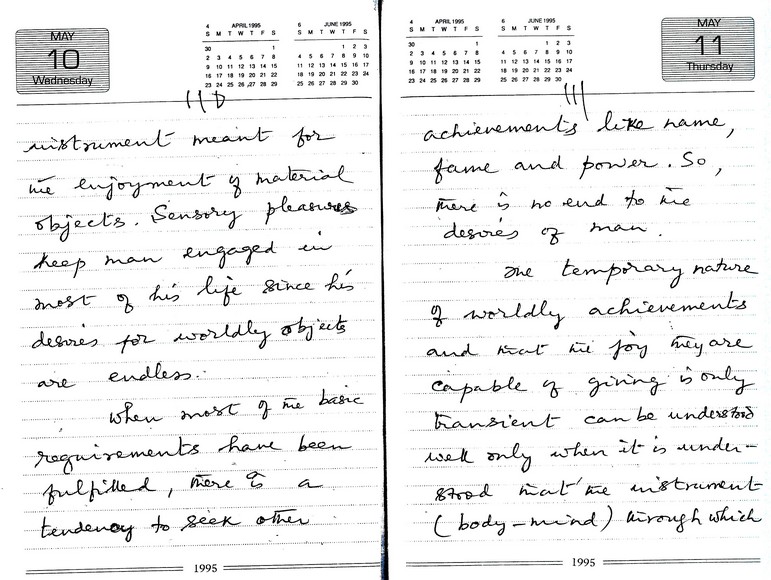 MAY
10
Wednesday
4 APRIL 1995
S M T W T F S
30 1
2 3 4 5 6 7 8
9 10 11 12 13 14 15
16 17 18 19 20 21 22
23 24 25 26 27 28 29
6 JUNE 1995
S M T W T F S
1 2 3
4 5 6 7 8 9 10
11 12 13 14 15 16 17
18 19 20 21 22 23 24
25 26 27 28 29 30
110
instrument meant for
the enjoyment of material
objects. Sensory pleasures
keep man engaged in
most of his life since his
desires for worldly objects
are endless.
When most of the basic
requirements have been
fulfilled, there is a
tendency to seek other
1995
4 APRIL 1995
S M T W T F S
30 1
2 3 4 5 6 7 8
9 10 11 12 13 14 15
16 17 18 19 20 21 22
23 24 25 26 27 28 29
6 JUNE 1995
S M T W T F S
1 2 3
4 5 6 7 8 9 10
11 12 13 14 15 16 17
18 19 20 21 22 23 24
25 26 27 28 29 30
MAY
11
Thursday
111
achievements like name,
fame and power. So,
there is no end to the
desires of man.
The temporary nature
of worldly achievements
and that the joy they are
capable of giving is only
transient can be understood
well only when it is under-
stood that the instrument
(body-mind) through which
1995